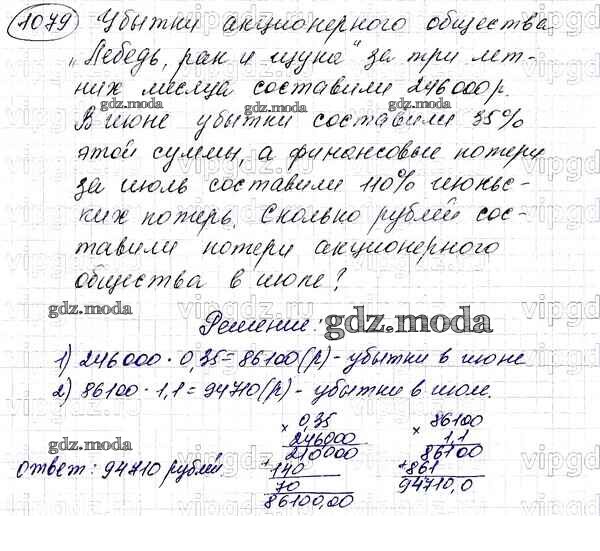 1079 Убытки акционерного общества
„Лебедь, рак и щука“ за три лет-
них месяца составили 246000 р.
gdz.moda gdz.moda
В июне убытки составили 35%
этой суммы, а финансовые потери
за июль составили 110% июньс-
ких потерь. Сколько рублей сос-
тавили потери акционерного
общества в июле?
gdz.moda
Решение: gdz.moda
1) 246000 · 0,35 = 86100 (р) - убытки в июне
2) 86100 · 1,1 = 94710 (р) - убытки в июле.
gdz.moda
ответ: 94710 рублей
× 0,35
246000
210000
+ 140
70
86100,00
× 86100
1,1
86100
+ 861
94710,0